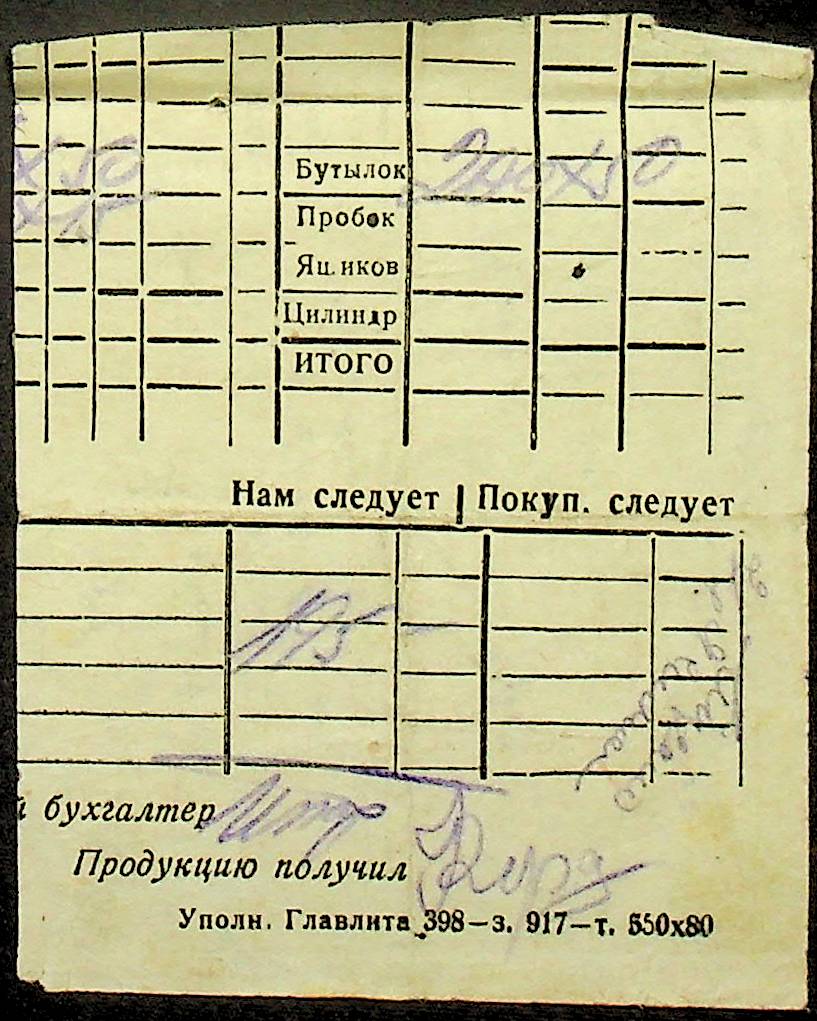 х 50
Бутылок 240х50
х 15
Пробок
Ящиков
Цилиндр
ИТОГО
Нам следует | Покуп. следует
195 –
й бухгалтер
Продукцию получил
Уполн. Главлита 398—з. 917—т. 550х80